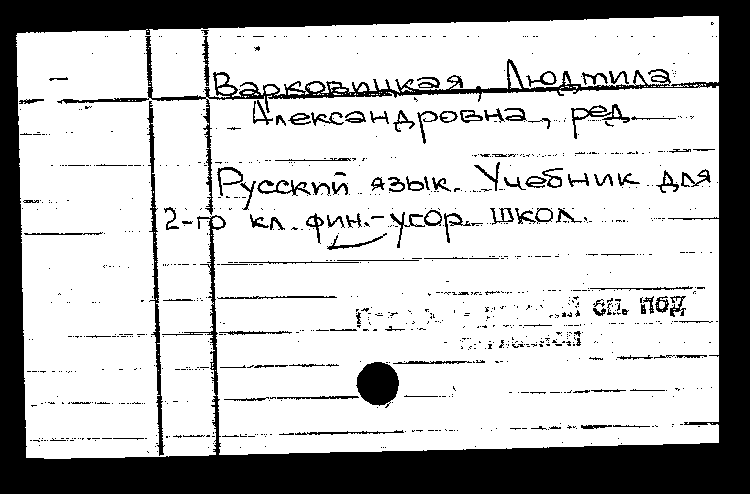 Варковицкая, Людмила
Александровна, ред.
Русский язык. Учебник для
2-го кл. фин.-угор. школ.
оп. под